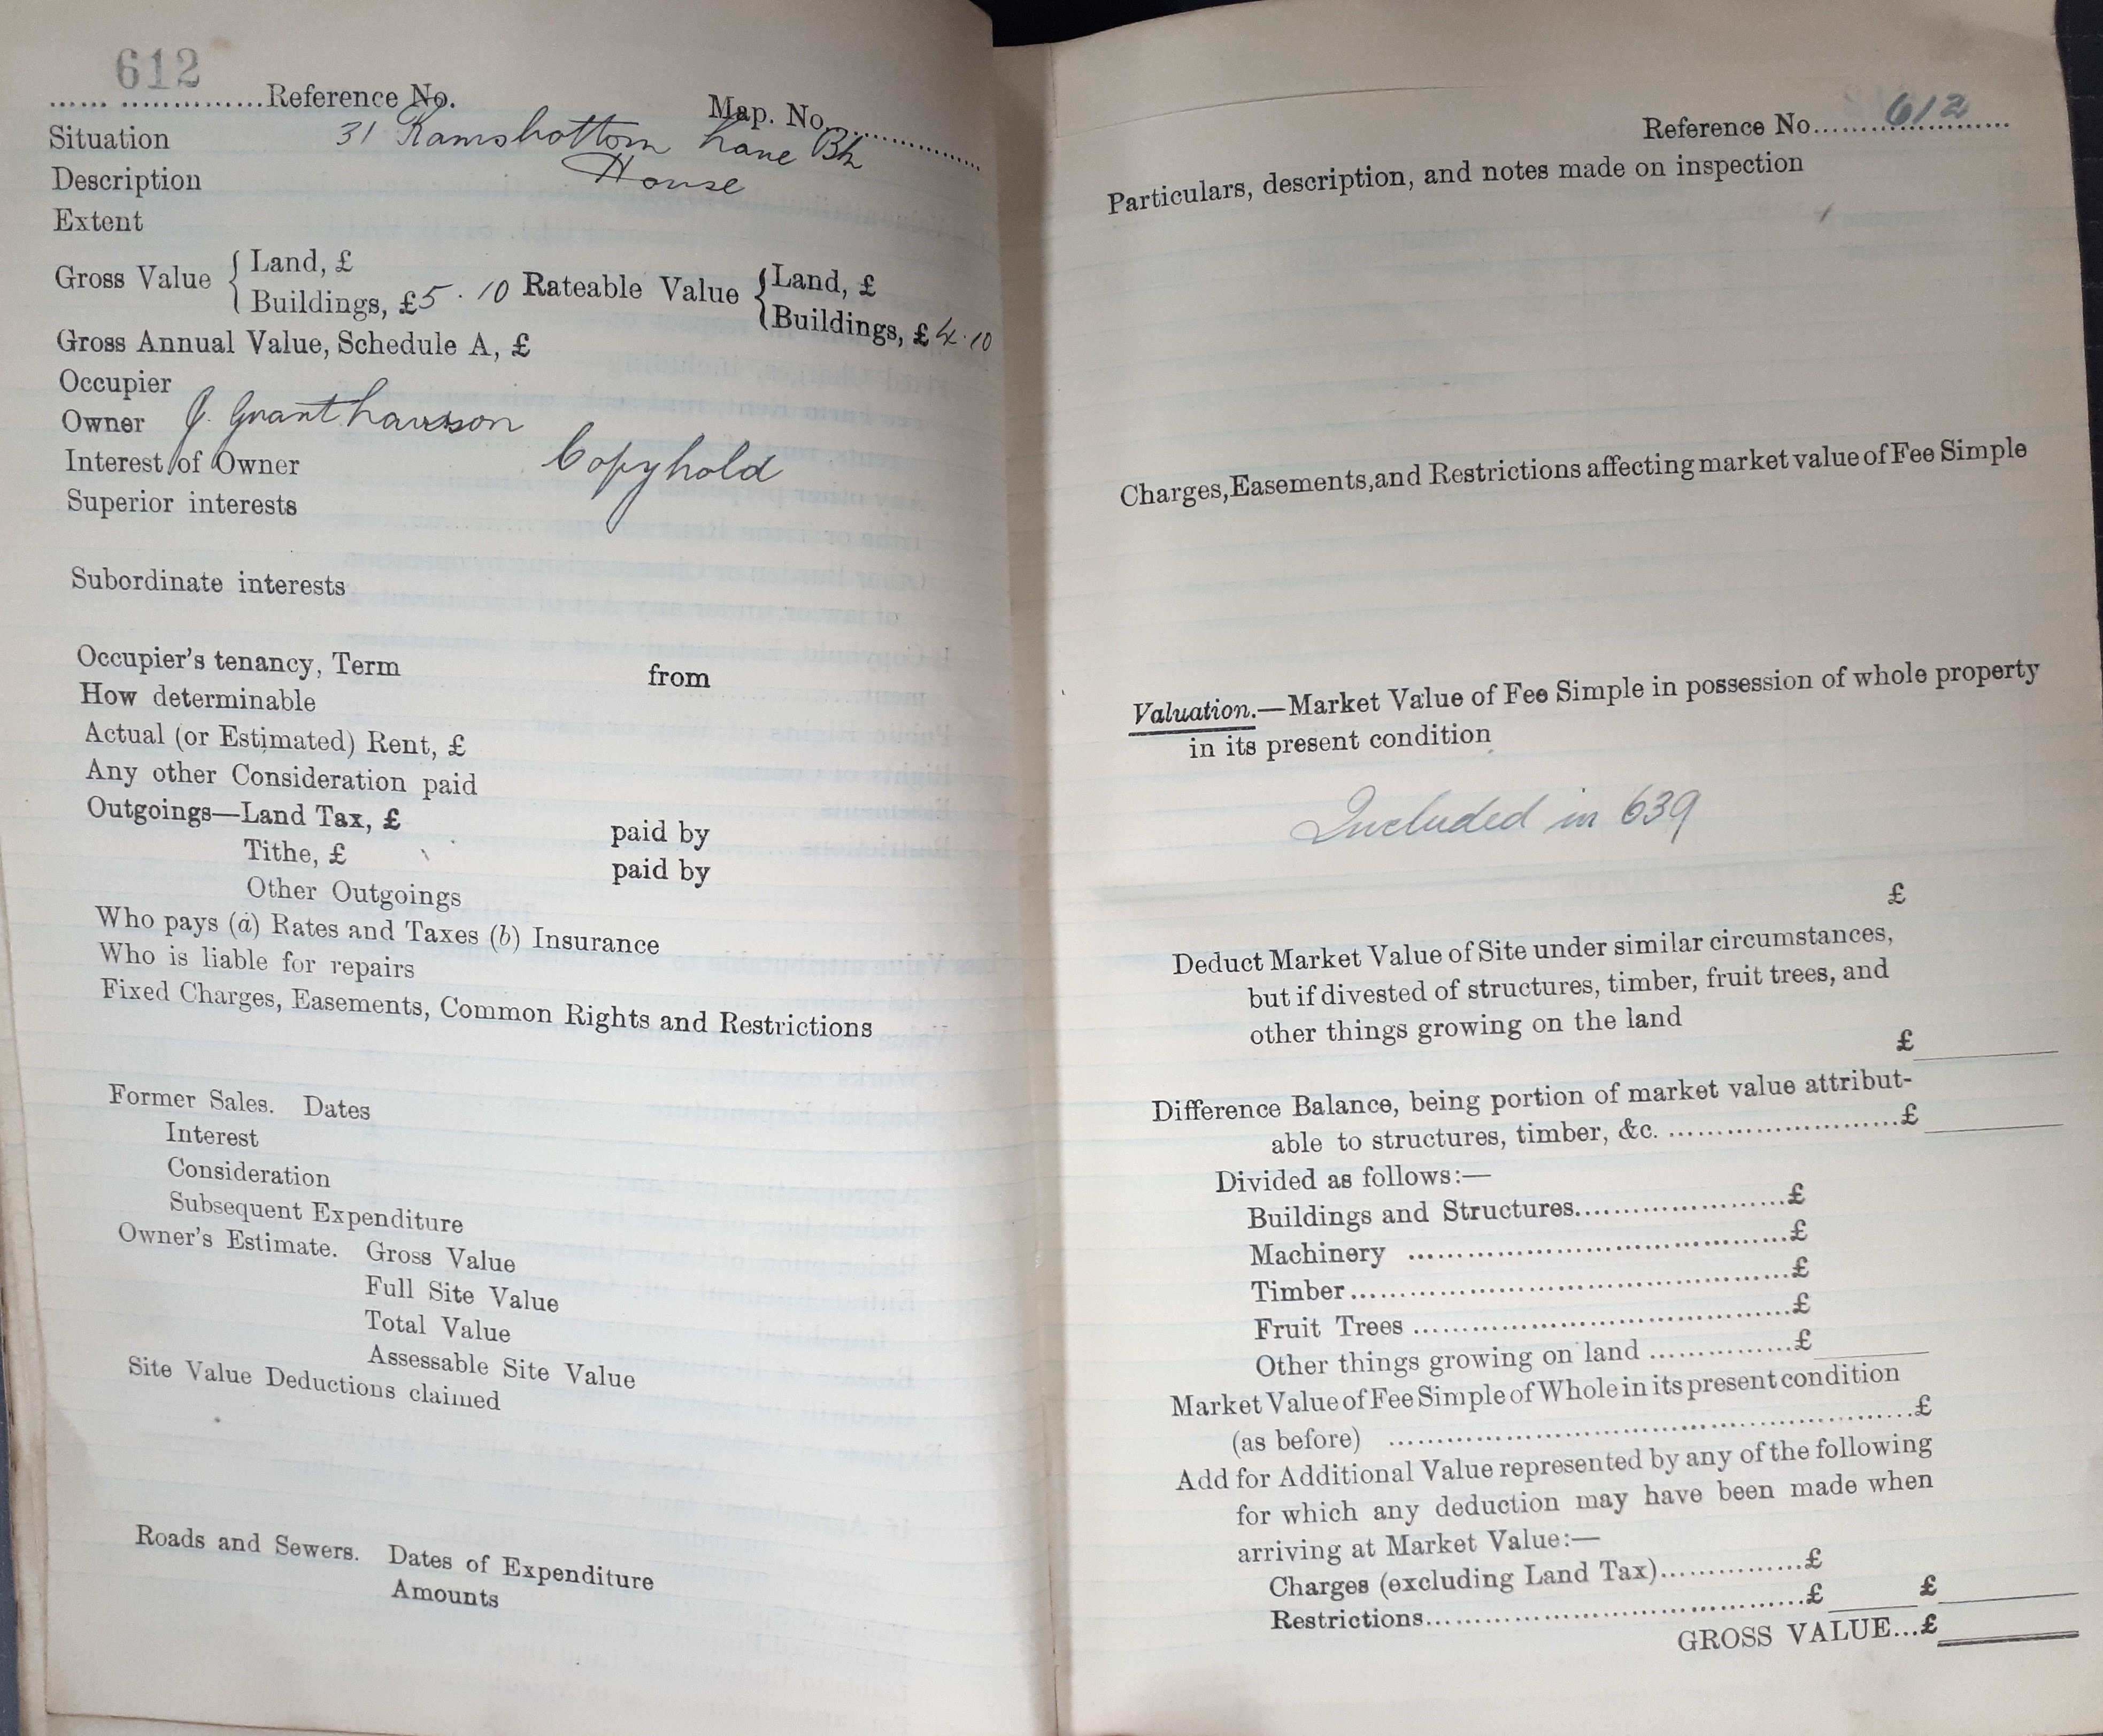 612
...... ...............Reference No.
Map. No...............
Situation 31 Ramsbottom Lane Bk
Description House
Extent
Gross Value { Land, £
Buildings, £5 . 10
Rateable Value { Land, £
Buildings, £4.10
Gross Annual Value, Schedule A, £
Occupier
Owner J. Grant Lawson
Interest of Owner Copyhold
Superior interests
Subordinate interests
Occupier's tenancy, Term from
How determinable
Actual (or Estimated) Rent, £
Any other Consideration paid
Outgoings—Land Tax, £ paid by
Tithe, £ paid by
Other Outgoings
Who pays (a) Rates and Taxes (b) Insurance
Who is liable for repairs
Fixed Charges, Easements, Common Rights and Restrictions
Former Sales. Dates
Interest
Consideration
Subsequent Expenditure
Owner's Estimate. Gross Value
Full Site Value
Total Value
Assessable Site Value
Site Value Deductions claimed
Roads and Sewers. Dates of Expenditure
Amounts
Reference No.....612.....
Particulars, description, and notes made on inspection
Charges, Easements, and Restrictions affecting market value of Fee Simple
Valuation.—Market Value of Fee Simple in possession of whole property
in its present condition
Included in 639
£
Deduct Market Value of Site under similar circumstances,
but if divested of structures, timber, fruit trees, and
other things growing on the land
£
Difference Balance, being portion of market value attribut-
able to structures, timber, &c. ..........................£
Divided as follows:—
Buildings and Structures.......................£
Machinery ..........................................£
Timber................................................£
Fruit Trees ..........................................£
Other things growing on land ................£
Market Value of Fee Simple of Whole in its present condition
(as before) ..........................................................£
Add for Additional Value represented by any of the following
for which any deduction may have been made when
arriving at Market Value:—
Charges (excluding Land Tax)................£
Restrictions..........................................£ £
GROSS VALUE...£